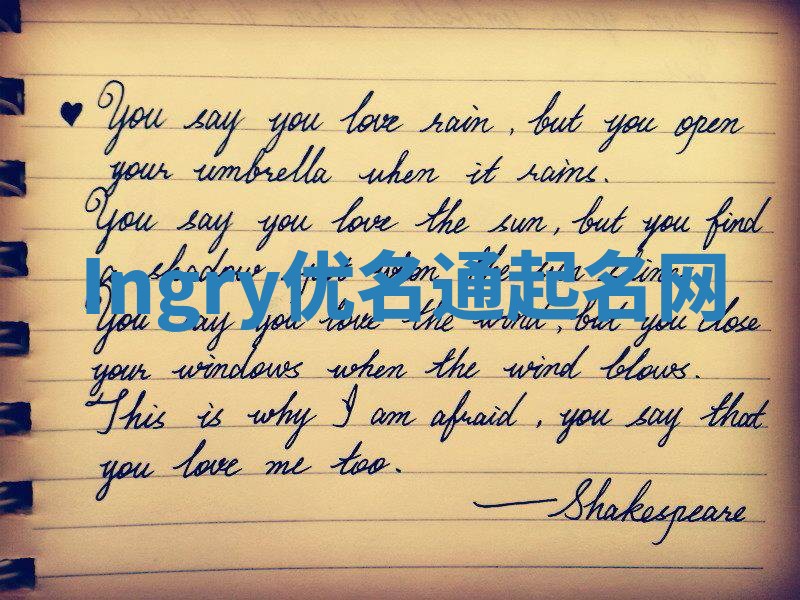 You say you love rain, but you open
your umbrella when it rains.
You say you love the sun, but you find
a shadow spot when the sun shines.
Ingry优名通起名网
You say you love the wind, but you close
your windows when the wind blows.
This is why I am afraid, you say that
you love me too.
—Shakespeare